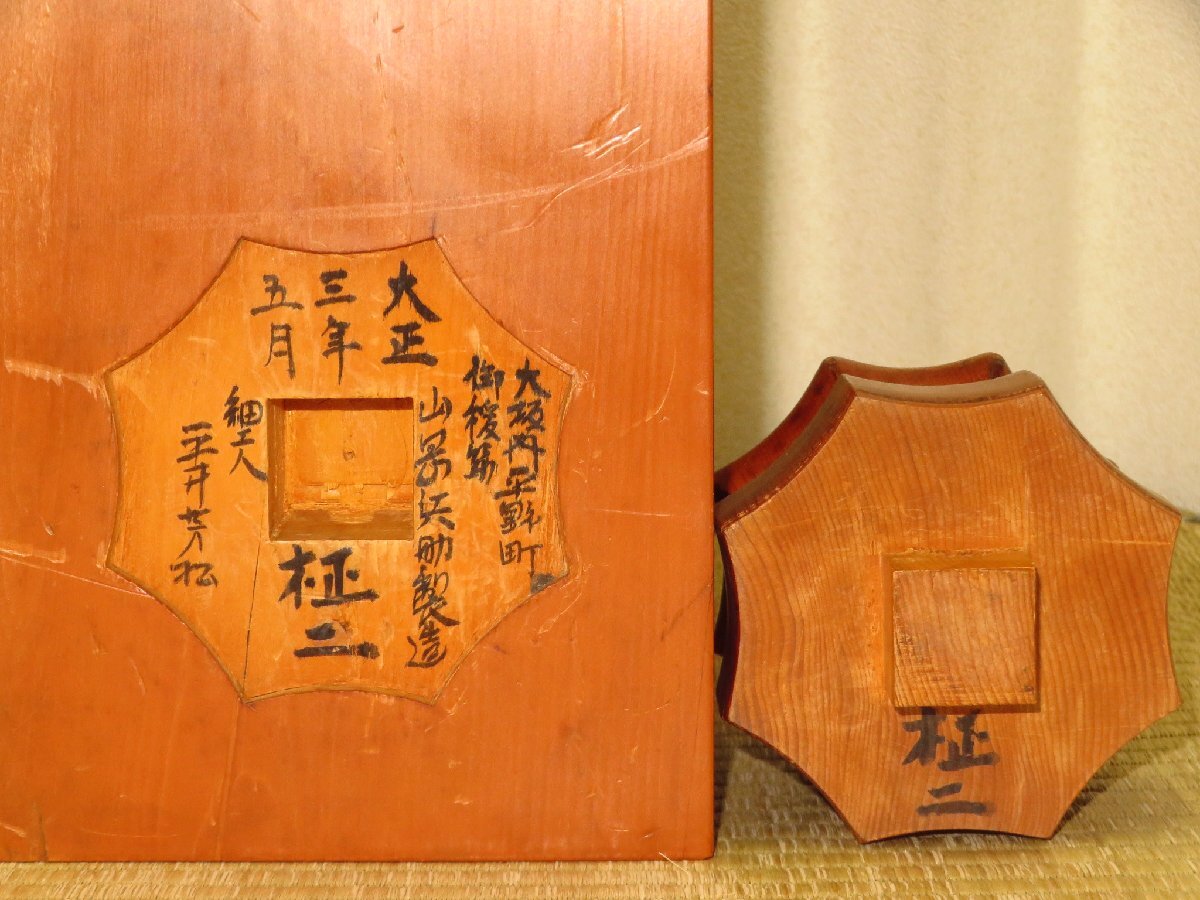 大正
三年
五月
大坂内平野町
御祓筋
山 兵助製造
細工人
平井芳松
柾
二
柾
二